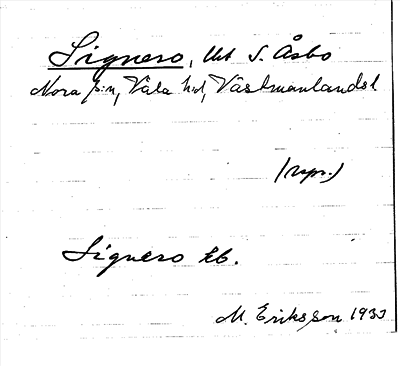 Signero, lht S. Åsbo
Nora sn, Våla hd, Västmanlands l
(upr.)
Signero Eb.
M. Eriksson 1933